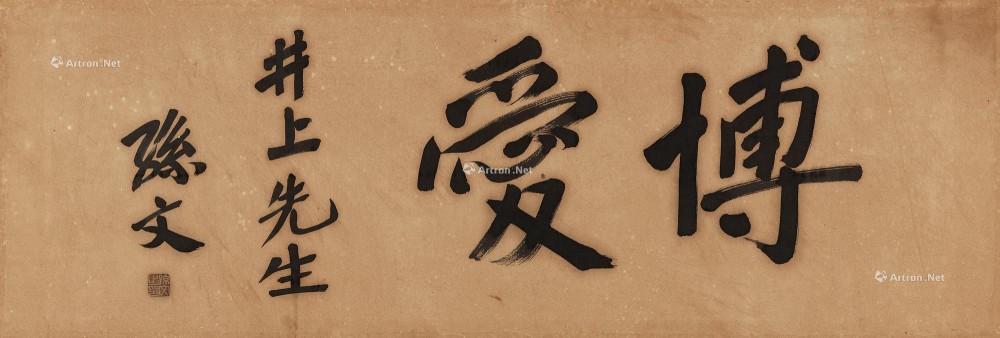 博愛
井上先生
孫文
Artron.Net
Artron.Net
Artron.Net